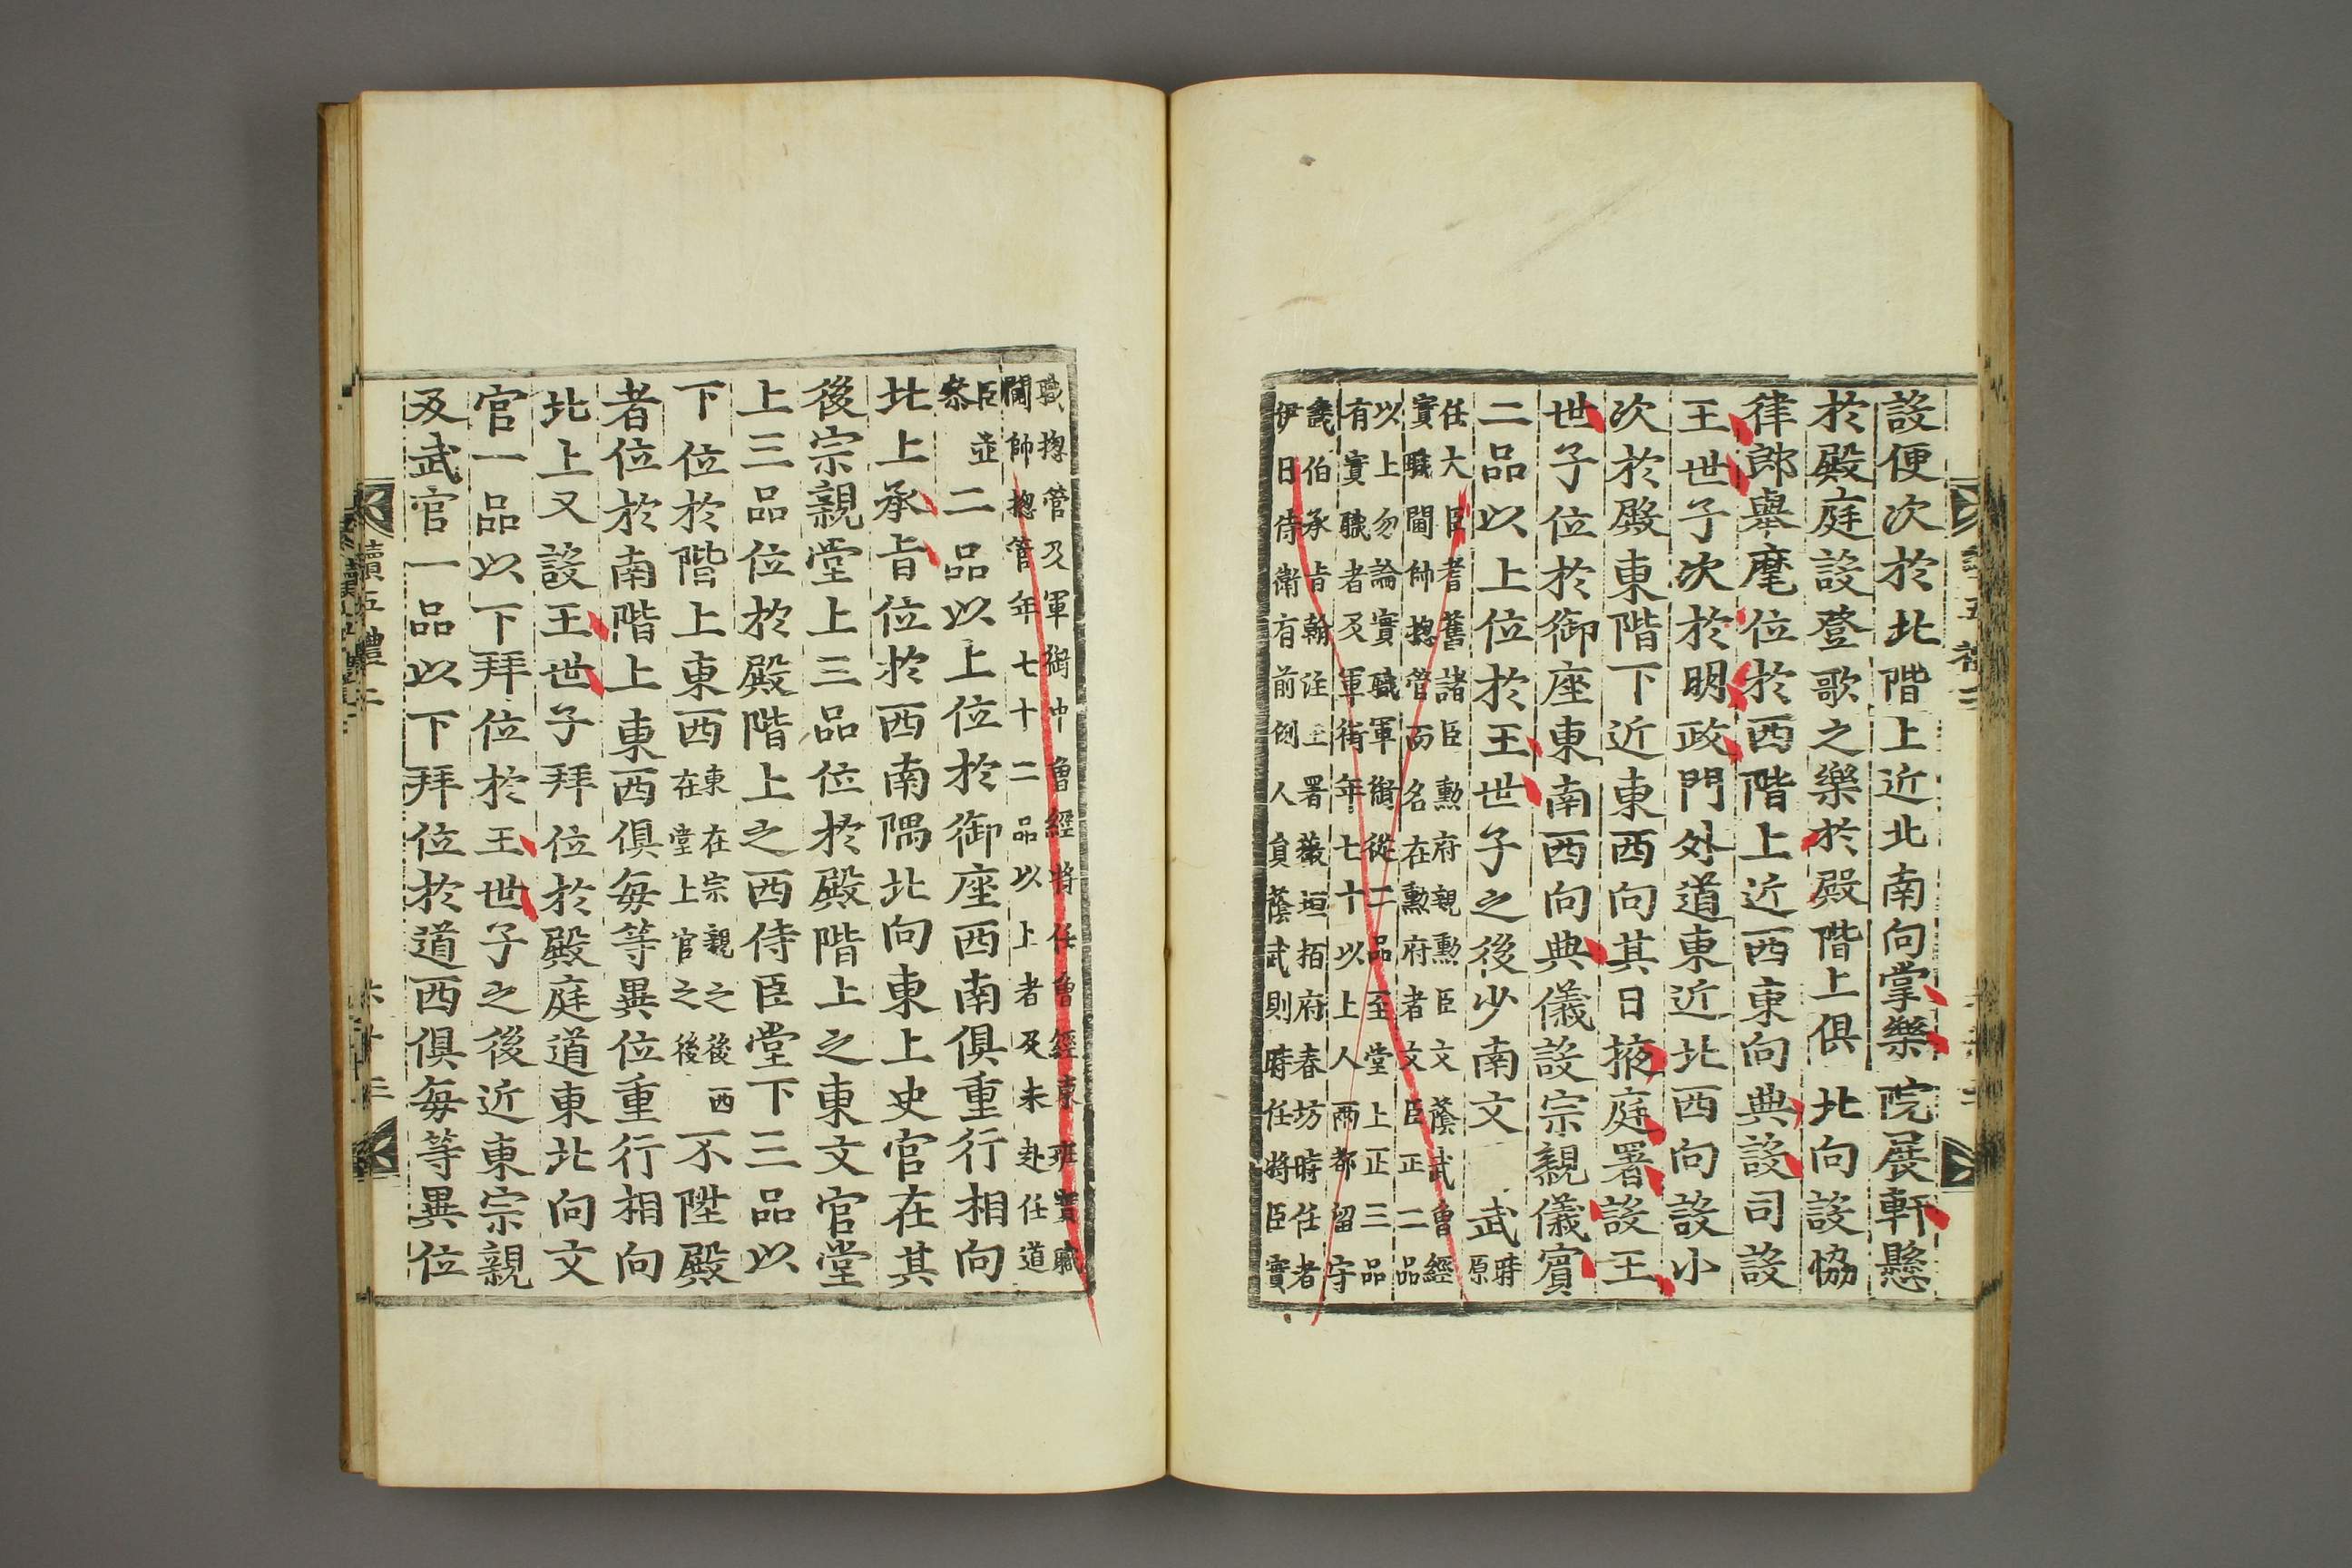 設便次於北階上近北南向掌樂院展軒懸
於殿庭設登歌之樂於殿階上俱北向設協
律郎擧麾位於西階上近西東向典設司設
王世子次於明政門外道東近北西向設小
次於殿東階下近東西向其日掖庭署設王
世子位於御座東南西向典儀設宗親儀賓
二品以上位於王世子之後少南文武時原
任大臣耆舊諸臣勳府親勳臣文蔭武曾經
實職閫帥摠管而名在勳府者文臣正二品
以上勿論實職軍銜從二品至堂上正三品
有實職者及軍銜年七十以上人兩都留守
畿伯承旨翰注主署薇垣栢府春坊時任者
伊日侍衛有前例人員蔭武則時任將臣實
職摠管及軍銜中曾經將任曾經東班實職
閫帥摠管年七十二品以上者及未赴任道
臣並
叅二品以上位於御座西南俱重行相向
北上承旨位於西南隅北向東上史官在其
後宗親堂上三品位於殿階上之東文官堂
上三品位於殿階上之西侍臣堂下三品以
下位於階上東西東在宗親之後西
在堂上官之後不陞殿
者位於南階上東西俱每等異位重行相向
北上又設王世子拜位於殿庭道東北向文
官一品以下拜位於王世子之後近東宗親
及武官一品以下拜位於道西俱每等異位
續五禮二